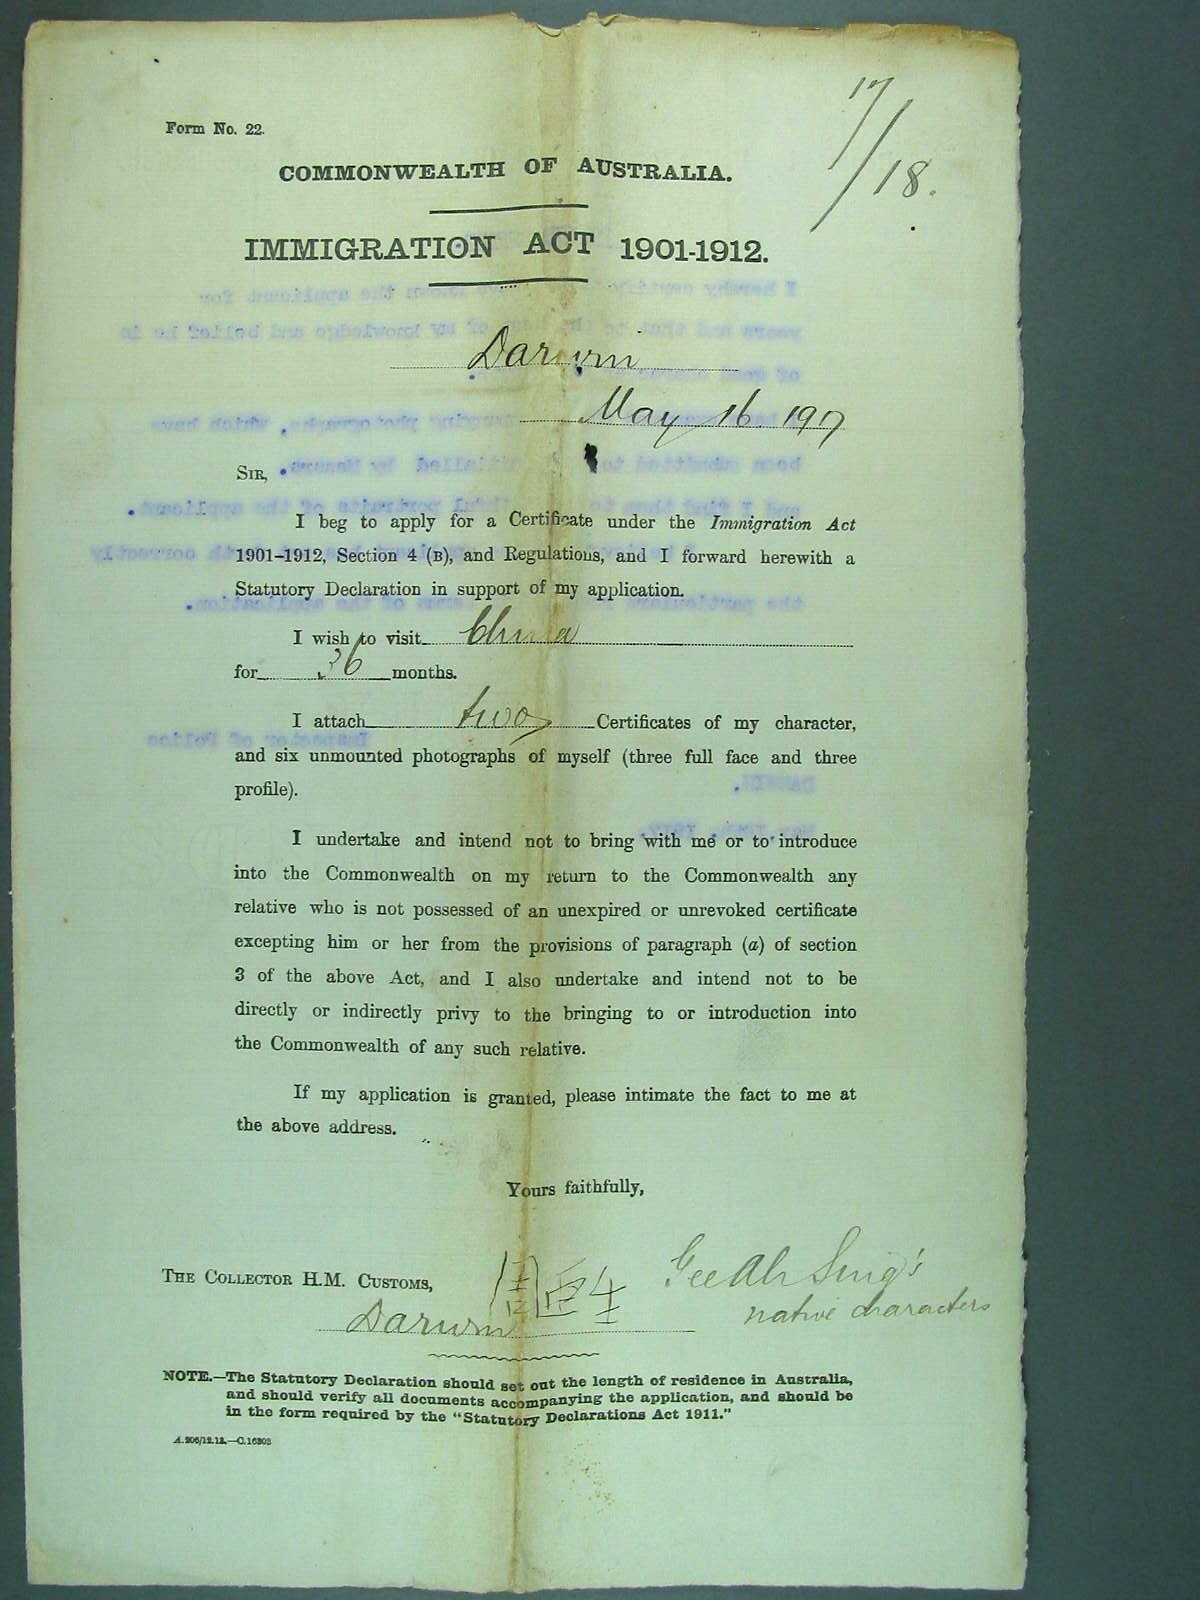 17/18.
Form No. 22.
COMMONWEALTH OF AUSTRALIA.
IMMIGRATION ACT 1901-1912.
Darwin
May 16 1917
SIR,
I beg to apply for a Certificate under the Immigration Act
1901–1912, Section 4 (B), and Regulations, and I forward herewith a
Statutory Declaration in support of my application.
I wish to visit China
for 36 months.
I attach two Certificates of my character,
and six unmounted photographs of myself (three full face and three
profile).
I undertake and intend not to bring with me or to introduce
into the Commonwealth on my return to the Commonwealth any
relative who is not possessed of an unexpired or unrevoked certificate
excepting him or her from the provisions of paragraph (a) of section
3 of the above Act, and I also undertake and intend not to be
directly or indirectly privy to the bringing to or introduction into
the Commonwealth of any such relative.
If my application is granted, please intimate the fact to me at
the above address.
Yours faithfully,
THE COLLECTOR H.M. CUSTOMS,
Gee Ah Sing's
native characters
Darwin
NOTE.—The Statutory Declaration should set out the length of residence in Australia,
and should verify all documents accompanying the application, and should be
in the form required by the "Statutory Declarations Act 1911."